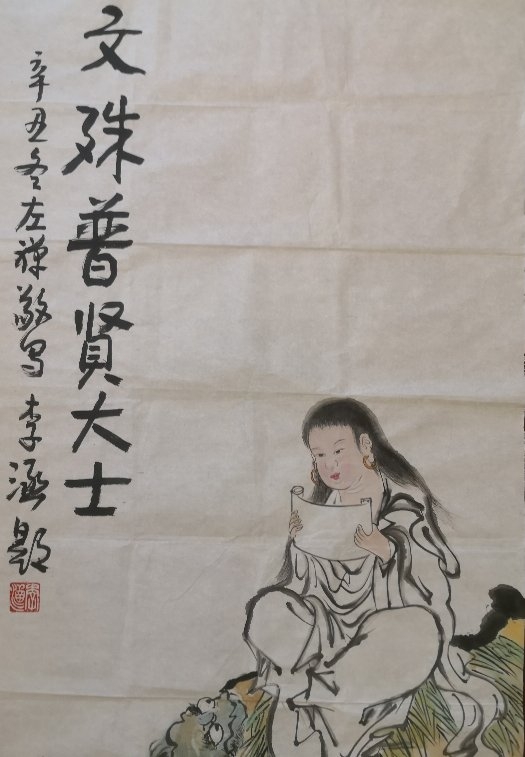 文殊普贤大士
辛丑冬左禅敬写 李涵题